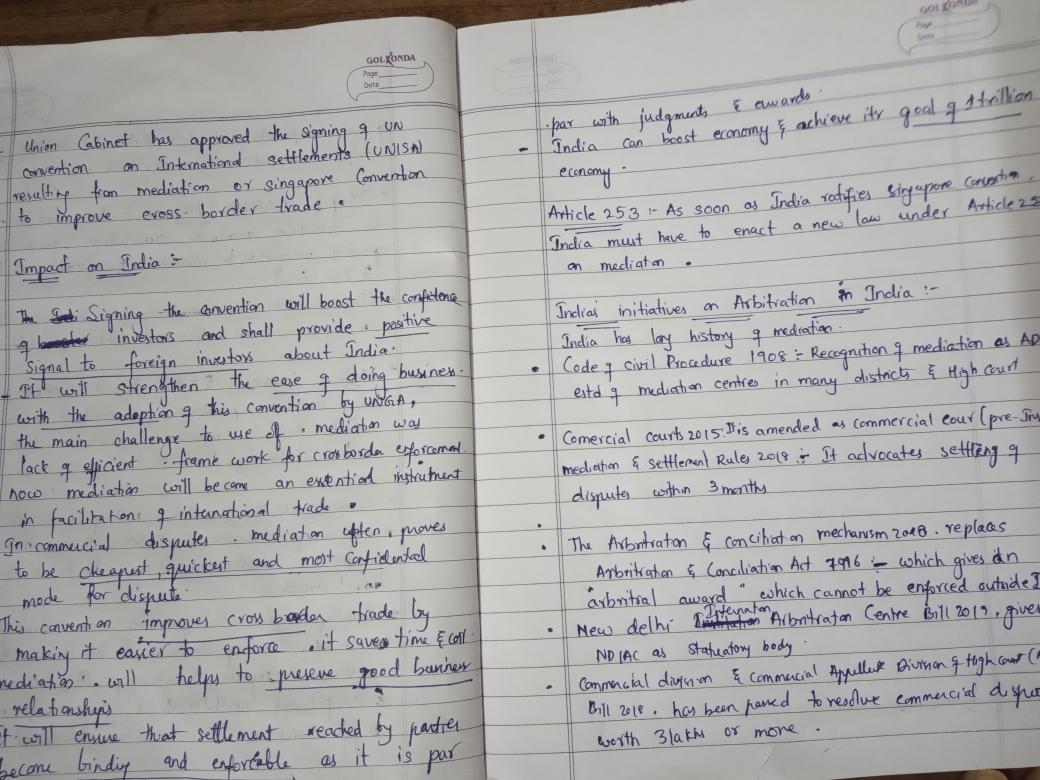 GOLKONDA
Page
Date
Union Cabinet has approved the signing of UN
convention on International settlements (UNISA)
resulting from mediation or singapore Convention
to improve cross border trade.
Impact on India :-
The Signing the convention will boost the confidence
of investors and shall provide positive
signal to foreign investors about India.
- It will strengthen the ease of doing business.
with the adoption of this convention by UNGA,
the main challenge to use of mediation was
lack of efficient frame work for crossborder enforcement.
now mediation will become an essential instrument
in facilitation of international trade.
In commercial disputes mediation often proves
to be cheapest, quickest and most confidental
mode for dispute.
This convention improves cross border trade by
making it easier to enforce. it saves time & cost
mediation will helps to preseve good business
relationships
it will ensure that settlement reached by parties
become binding and enforcable as it is par
GOLKONDA
Page
Date
par with judgments & awards.
- India can boost economy & achieve its goal of 1 trillion
economy.
Article 253 :- As soon as India ratifies singapore convention,
India must have to enact a new law under Article 25
on mediaton.
India's initiatives on Arbitration in India :-
India has long history of mediation.
• Code of civil Procedure 1908 :- Recognition of mediation as AD
estd of mediation centres in many districts & High court
• Comercial courts 2015. It is amended as commercial cour (pre-Ins
mediation & settlement Rules 2018 :- It advocates settling of
disputes within 3 months
• The Arbitration & conciliation mechanism replaces
Arbritration & Conciliation Act :- which gives an
"arbritral award" which cannot be enforced outside I
• New delhi Internaton Arbritraton Centre Bill 2019, gives
NDIAC as statuatory body.
• Commercial division & commercial Appellate Division of High court (A
Bill 2018. has been passed to resolve commercial dispu
worth 3lakhs or more.